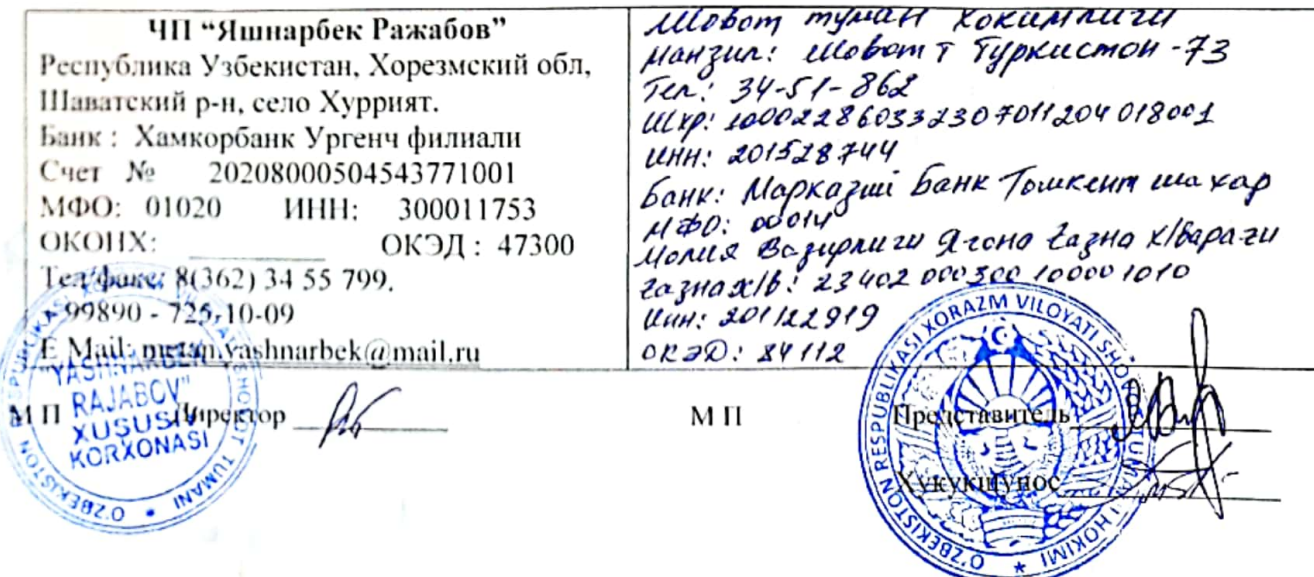 ЧП “Яшнарбек Ражабов”
Республика Узбекистан, Хорезмский обл,
Шаватский р-н, село Хуррият.
Банк : Хамкорбанк Ургенч филиали
Счет № 20208000504543771001
МФО: 01020 ИНН: 300011753
ОКОНХ: ОКЭД : 47300
Тел/факс: 8(362) 34 55 799.
99890 - 725-10-09
E Mail: metan.yashnarbek@mail.ru
Шовот туман хокимлиги
Манзил: Шовот т Туркистон-73
Тел: 34-51-862
Шхр: 100022860332307011204018001
ИНН: 201528744
Банк: Марказий Банк Тошкент шахар
МФО: 00014
Молия Вазирлиги Ягона Газна х/варағи
Газна х/в: 23402000300100001010
Инн: 201122919
ОКЭД: 84112
М П Директор
М П Представитель
Хукукшунос
"YASHNARBEK RAJABOV" XUSUSIY KORXONASI
O'ZBEKISTON RESPUBLIKASI XORAZM VILOYATI SHOVOT TUMANI HOKIMI